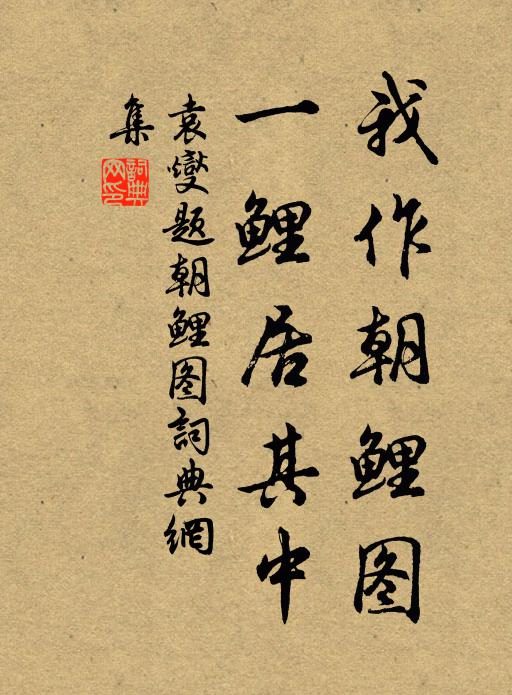 我作朝鲤图
一鲤居其中
袁燮题朝鲤图詞典網
集
詞典
网印